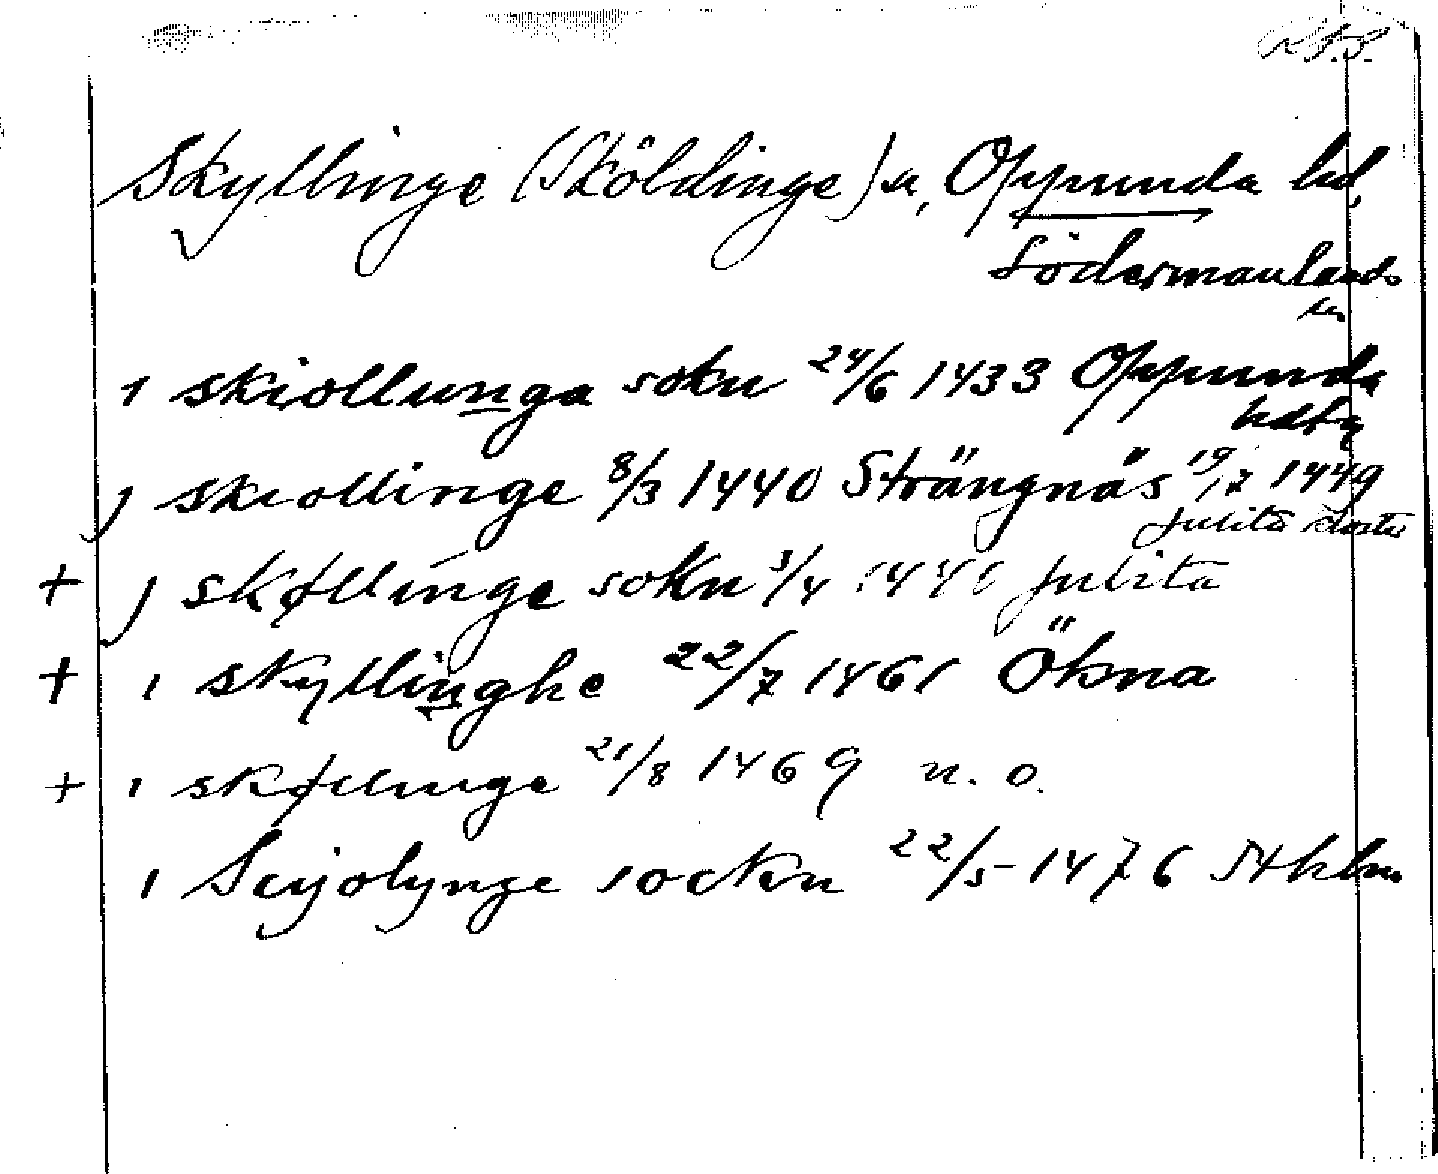 Skyllinge (Sköldinge) sn, Oppunda hd,
Södermanlands
län
i skiollunga sokn 24/6 1433 Oppunda
hdtg
j skiollinge 8/3 1440 Strängnäs 19/7 1449
Julita kloster
+ j skøllinge sokn 3/4 1446 Julita
+ i skyllinghe 22/7 1461 Ökna
+ i skøllinge 21/8 1469 u. o.
i Scyolynge sockn 22/5 1476 Sthlm